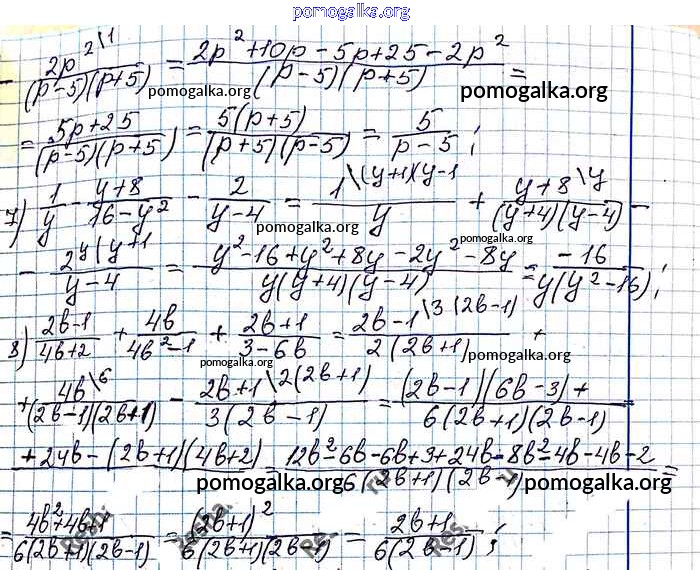 pomogalka.org
- 2p^2\1 / (p-5)(p+5) = 2p^2+10p-5p+25-2p^2 / (p-5)(p+5) =
pomogalka.org pomogalka.org
= 5p+25 / (p-5)(p+5) = 5(p+5) / (p+5)(p-5) = 5 / p-5 ;
7) 1/y - y+8 / 16-y^2 - 2 / y-4 = 1\(y+1)(y-1 / y + y+8\y / (y+4)(y-4) -
pomogalka.org pomogalka.org
- 2y(y+1 / y-4 = y^2-16+y^2+8y-2y^2-8y / y(y+4)(y-4) = -16 / y(y^2-16) ;
8) 2b-1 / 4b+2 + 4b / 4b^2-1 + 2b+1 / 3-6b = 2b-1\3(2b-1) / 2(2b+1) +
pomogalka.org pomogalka.org
+ 4b\6 / (2b-1)(2b+1) - 2b+1\2(2b+1) / 3(2b-1) = (2b-1)(6b-3)+ / 6(2b+1)(2b-1)
+24b-(2b+1)(4b+2) = 12b^2-6b-6b+3+24b-8b^2-4b-4b-2 / 6(2b+1)(2b-1) =
pomogalka.org pomogalka.org
= 4b^2+4b+1 / 6(2b+1)(2b-1) = (2b+1)^2 / 6(2b+1)(2b-1) = 2b+1 / 6(2b-1) ;